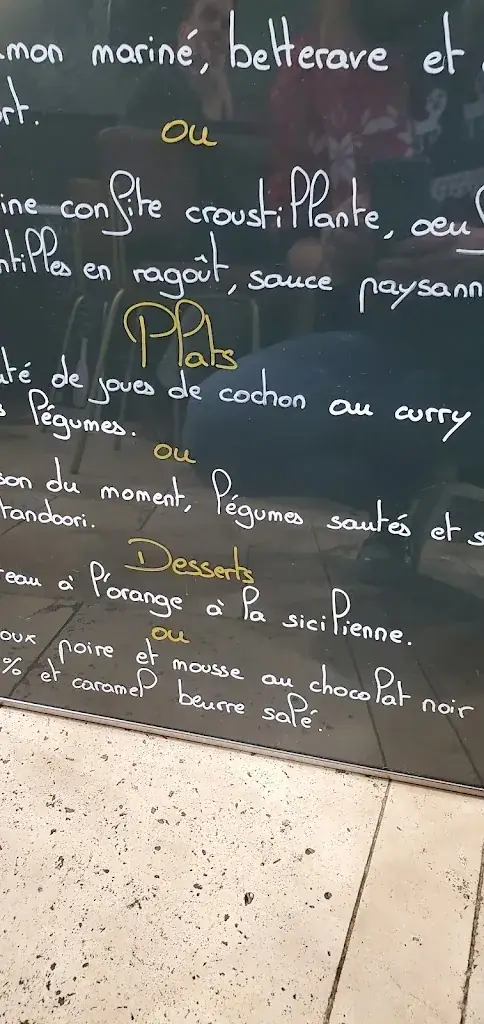 mon mariné, betterave et
rt.
ou
ine confite croustillante, oeuf
ntilles en ragoût, sauce paysann
Plats
té de joues de cochon au curry
s légumes.
ou
son du moment, légumes sautés et s
tandoori.
Desserts
eau à l'orange à la sicilienne.
ou
oux poire et mousse au chocolat noir
% et caramel beurre salé.